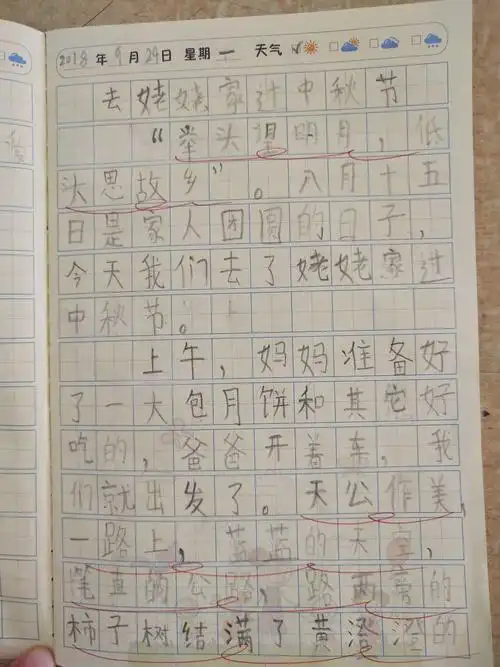 2018年9月24日 星期一 天气
去姥姥家过中秋节
“举头望明月,低
头思故乡”。八月十五
日是家人团圆的日子,
今天我们去了姥姥家过
中秋节。
上午,妈妈准备好
了一大包月饼和其它好
吃的,爸爸开着车,我
们就出发了。天公作美,
一路上,蓝蓝的天空,
笔直的公路,路两旁的
柿子树结满了黄澄澄的